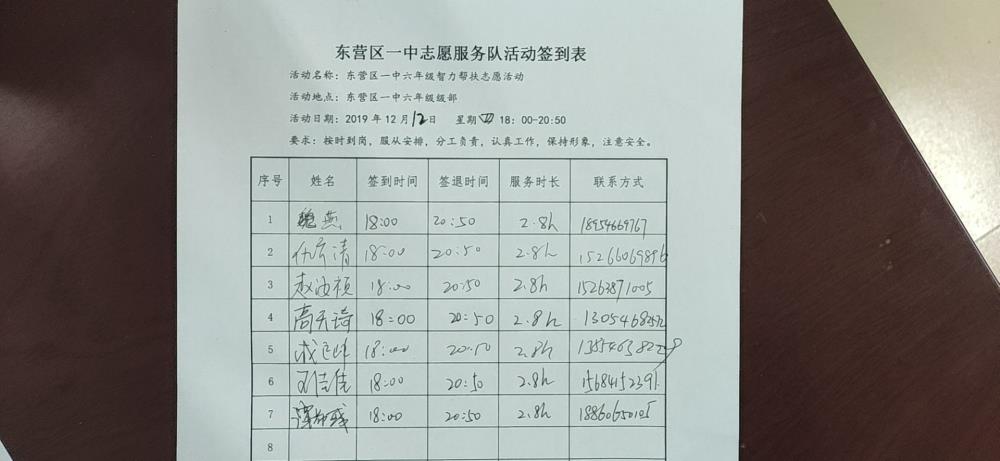 东营区一中志愿服务队活动签到表
活动名称：东营区一中六年级智力帮扶志愿活动
活动地点：东营区一中六年级级部
活动日期：2019 年 12 月 12 日 星期四 18：00-20:50
要求：按时到岗，服从安排，分工负责，认真工作，保持形象，注意安全。
序号 姓名 签到时间 签退时间 服务时长 联系方式
1 魏燕 18:00 20:50 2.8h 18954669767
2 18:00 20:50 2.8h 15266069896
3 18:00 20:50 2.8h 15263871005
4 高天琦 18:00 20:50 2.8h
5 18:00 20:50 2.8h
6 王佳佳 18:00 20:50 2.8h 15684152391
7 18:00 20:50 2.8h 18860650105
8